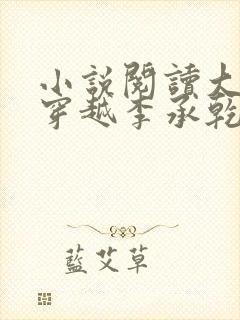 小說閱讀大
穿越李承乾
藍艾草